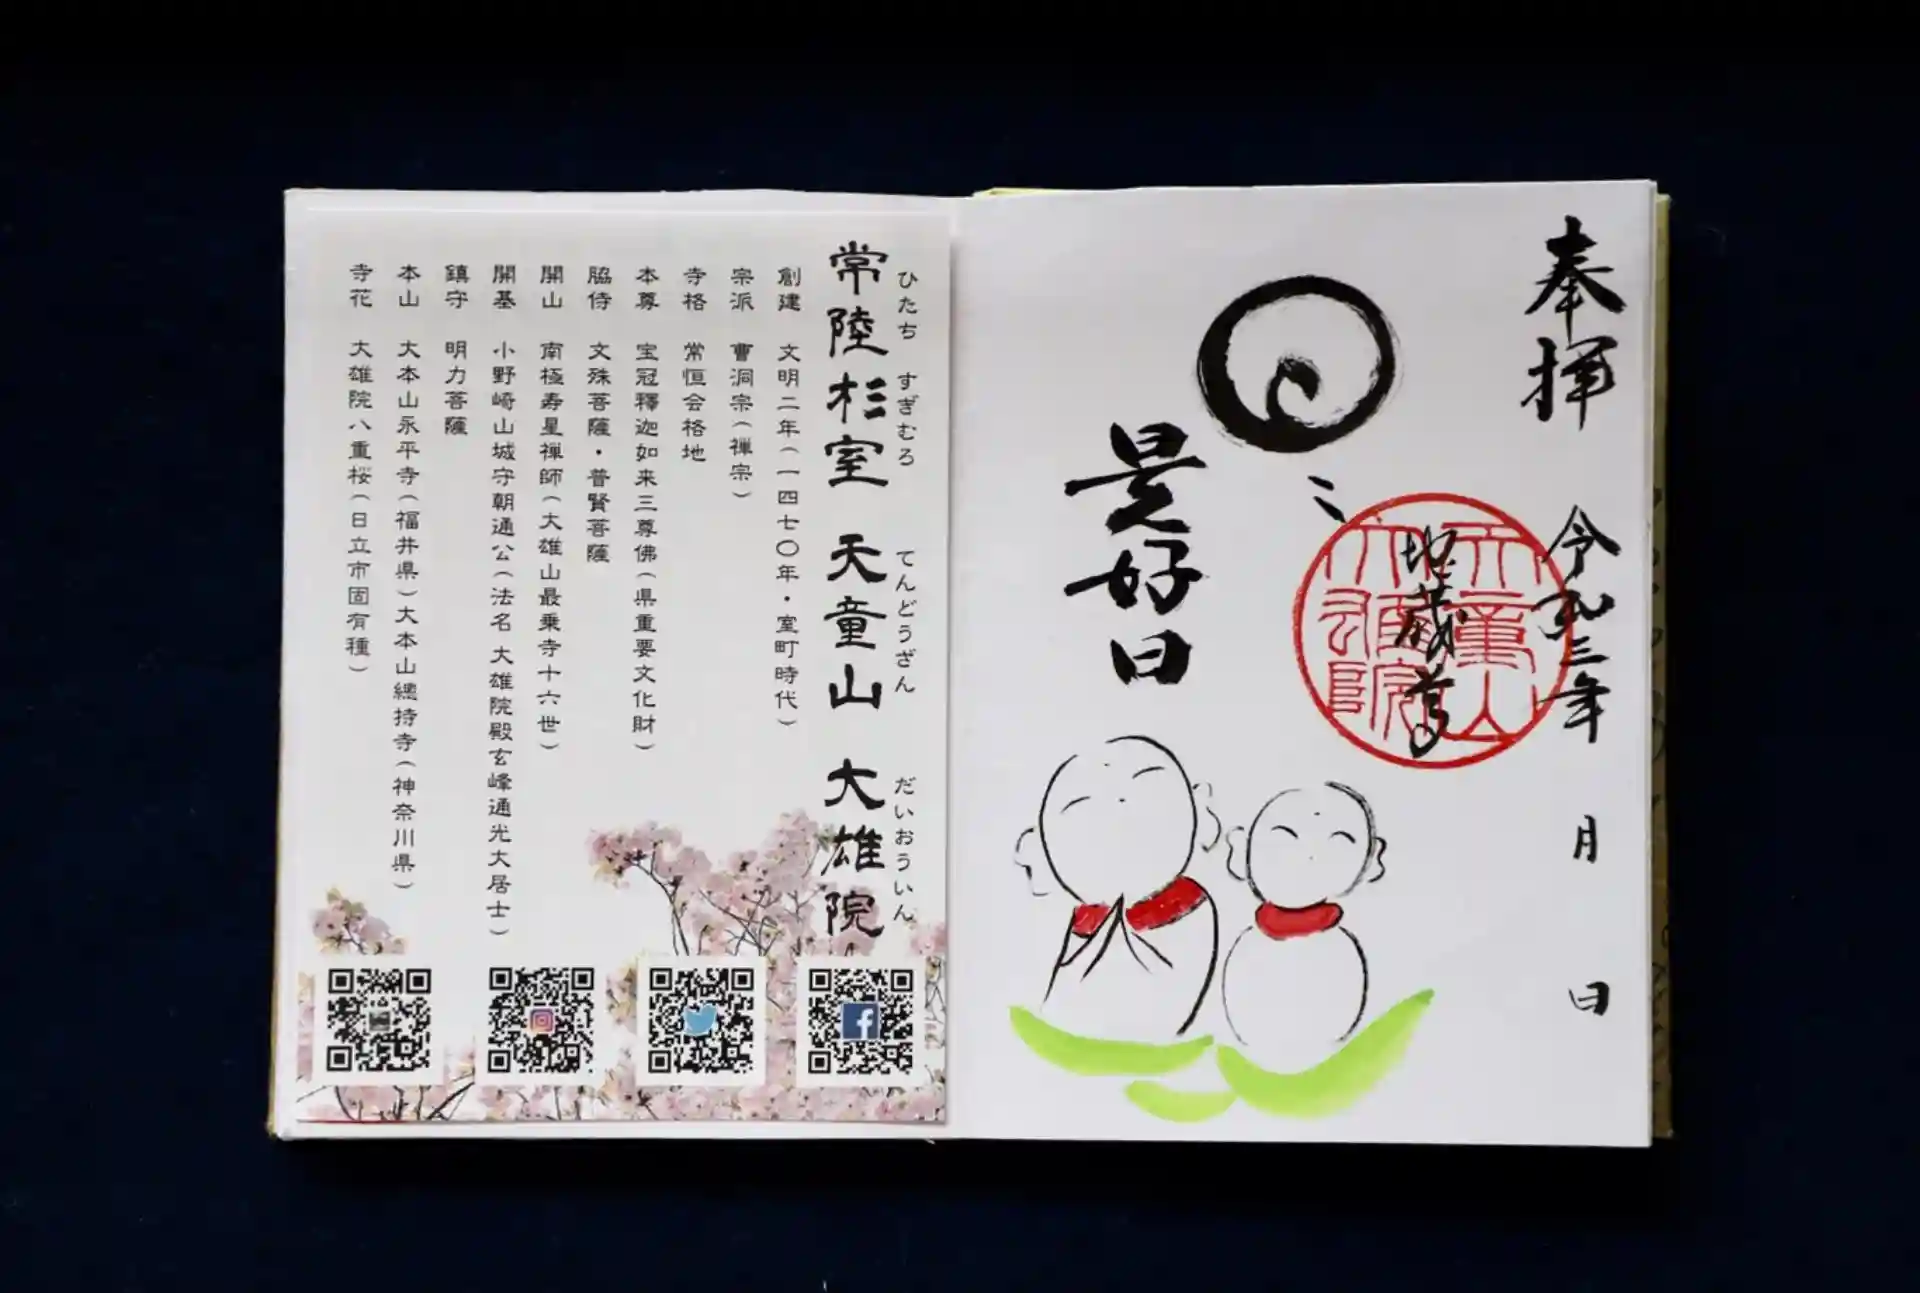 奉拝
令和三年　月　日
地蔵尊
天童山
大雄院
日々是好日
ひたち　すぎむろ　てんどうざん　だいおういん
常陸杉室　天童山　大雄院
創建　文明二年（一四七〇年・室町時代）
宗派　曹洞宗（禅宗）
寺格　常恒会格地
本尊　宝冠釋迦如来三尊佛（県重要文化財）
脇侍　文殊菩薩・普賢菩薩
開山　南極寿星禅師（大雄山最乗寺十六世）
開基　小野崎山城守朝通公（法名 大雄院殿玄峰通光大居士）
鎮守　明力菩薩
本山　大本山永平寺（福井県）大本山總持寺（神奈川県）
寺花　大雄院八重桜（日立市固有種）